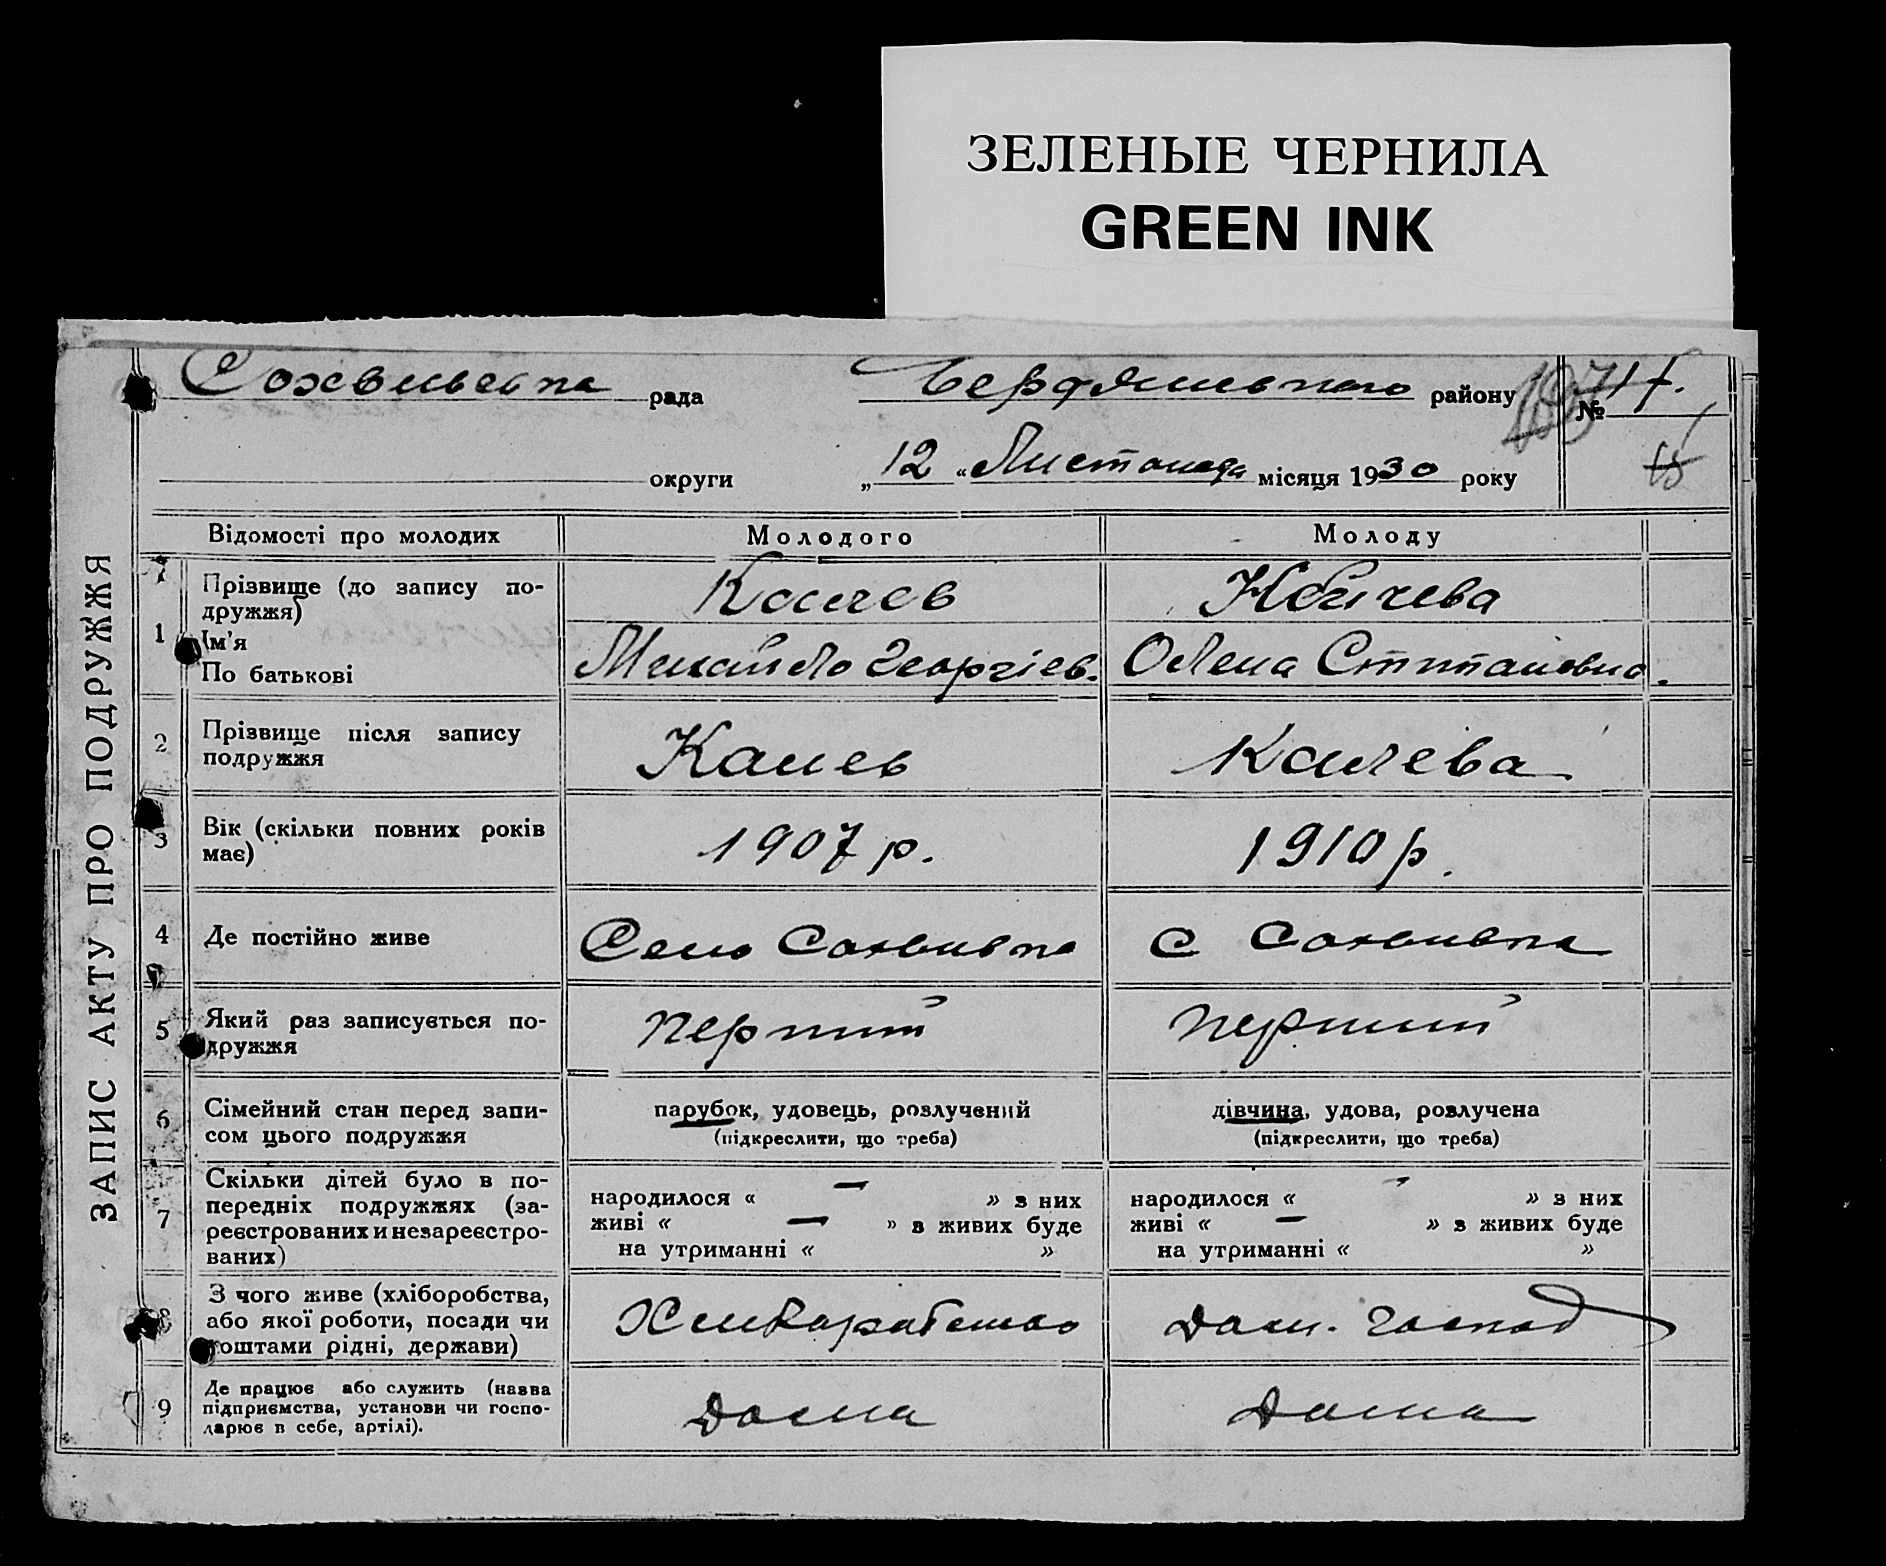 ЗЕЛЕНЫЕ ЧЕРНИЛА
GREEN INK
рада
району
№
округи
„ 12 “ Листопада місяця 1930 року
ЗАПИС АКТУ ПРО ПОДРУЖЖЯ
Відомості про молодих
Молодого
Молоду
1
Прізвище (до запису по-
дружжя)
Ім'я
По батькові
Михайло Георгіев.
Олена
2
Прізвище після запису
подружжя
3
Вік (скільки повних років
має)
1907 р.
1910 р.
4
Де постійно живе
Село
С
5
Який раз записується по-
дружжя
перший
перший
6
Сімейний стан перед запи-
сом цього подружжя
парубок, удовець, розлучений
(підкреслити, що треба)
дівчина, удова, розлучена
(підкреслити, що треба)
7
Скільки дітей було в по-
передніх подружжях (за-
реєстрованих и незареєстро-
ваних)
народилося « — » з них
живі « — » з живих буде
на утриманні « »
народилося « - » з них
живі « — » з живих буде
на утриманні « »
8
З чого живе (хліборобства,
або якої роботи, посади чи
коштами рідні, держави)
Дом. господ
9
Де працює або служить (назва
підприємства, установи чи госпо-
дарює в себе, артілі).
Дома
Дома